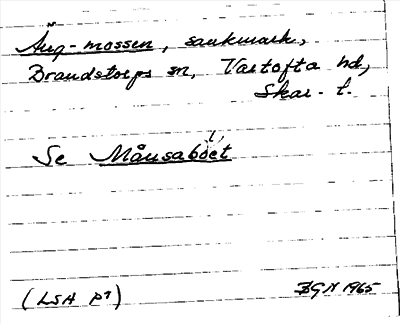 Äng-mossen, sankmark,
Brandstorps sn, Vartofta hd,
Skar. l.
Se Månsaboet
(LSA P7)
BGN 1965